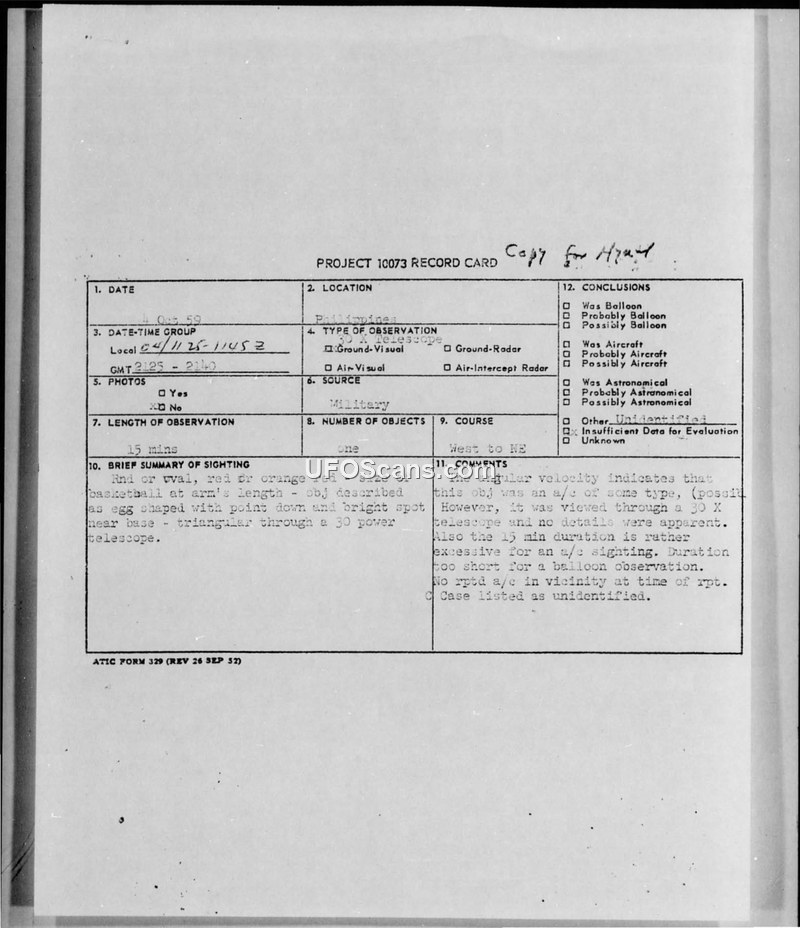 PROJECT 10073 RECORD CARD Copy for
1. DATE
4 Oct 59
2. LOCATION
Philippines
3. DATE-TIME GROUP
Local 04/1125-1140Z
GMT 2125 - 2140
4. TYPE OF OBSERVATION
30 X Telescope
Ground-Visual Ground-Radar
Air-Visual Air-Intercept Radar
5. PHOTOS
Yes
No
6. SOURCE
Military
7. LENGTH OF OBSERVATION
15 mins
8. NUMBER OF OBJECTS
one
9. COURSE
West to NE
12. CONCLUSIONS
Was Balloon
Probably Balloon
Possibly Balloon
Was Aircraft
Probably Aircraft
Possibly Aircraft
Was Astronomical
Probably Astronomical
Possibly Astronomical
Other Unidentified
Insufficient Data for Evaluation
Unknown
10. BRIEF SUMMARY OF SIGHTING
Rnd or oval, red or orange red - size of
basketball at arm's length - obj described
as egg shaped with point down and bright spot
near base - triangular through a 30 power
telescope.
11. COMMENTS
The angular velocity indicates that
this obj was an a/c of some type, (possib
However, it was viewed through a 30 X
telescope and no details were apparent.
Also the 15 min duration is rather
excessive for an a/c sighting. Duration
too short for a balloon observation.
No rptd a/c in vicinity at time of rpt.
C Case listed as unidentified.
UFOScans.com
ATIC FORM 329 (REV 26 SEP 52)